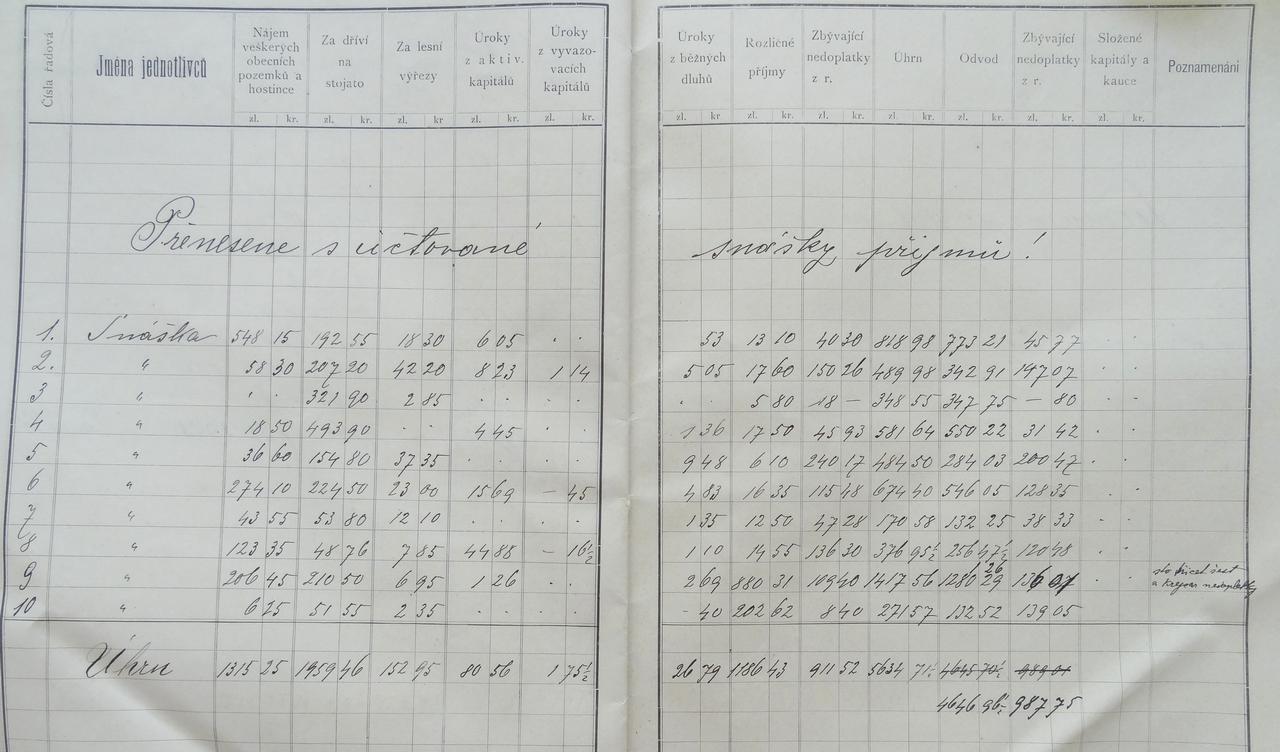 Čísla řadová
Jména jednotlivců
Nájem veškerých obecních pozemků a hostince
Za dříví na stojato
Za lesní výřezy
Úroky z aktiv. kapitálů
Úroky z vyvazovacích kapitálů
Úroky z běžných dluhů
Rozličné příjmy
Zbývající nedoplatky z r.
Úhrn
Odvod
Zbývající nedoplatky z r.
Složené kapitály a kauce
Poznamenání
zl. kr. zl. kr. zl. kr zl. kr. zl. kr. zl. kr zl. kr. zl. kr. zl. kr. zl. kr. zl. kr. zl. kr.
Přenesene s účtované snášky příjmů!
1. Snáška 548 15 192 55 18 30 6 05 . . 53 13 10 40 30 818 98 773 21 45 77 . .
2. " 58 30 207 20 42 20 8 23 1 14 5 05 17 60 150 26 489 98 342 91 147 07 . .
3 " . . 321 90 2 85 . . . . . . 5 80 18 — 348 55 347 75 — 80 . .
4 " 18 50 493 90 . . 4 45 . . 1 36 17 50 45 93 581 64 550 22 31 42 . .
5 " 36 60 154 80 37 35 . . . . 9 48 6 10 240 17 484 50 284 03 200 47 . .
6 " 274 10 224 50 23 00 15 69 — 45 4 83 16 35 115 48 674 40 546 05 128 35 . .
7 " 43 55 53 80 12 10 . . . . 1 35 12 50 47 28 170 58 132 25 38 33 . .
8 " 123 35 48 76 7 85 44 88 — 16½ 1 10 14 55 136 30 376 95½ 256 47½ 120 48 . .
9 " 206 45 210 50 6 95 1 26 . . 2 69 880 31 109 40 1417 56 1280 29 136 . .
10 " 6 25 51 55 2 35 . . . . - 40 202 62 8 40 271 57 132 52 139 05
Úhrn 1315 25 1959 46 152 95 80 56 1 75½ 26 79 1186 43 911 52 5634 71½ 4645 70½ 989 01
4646 96½ 987 75